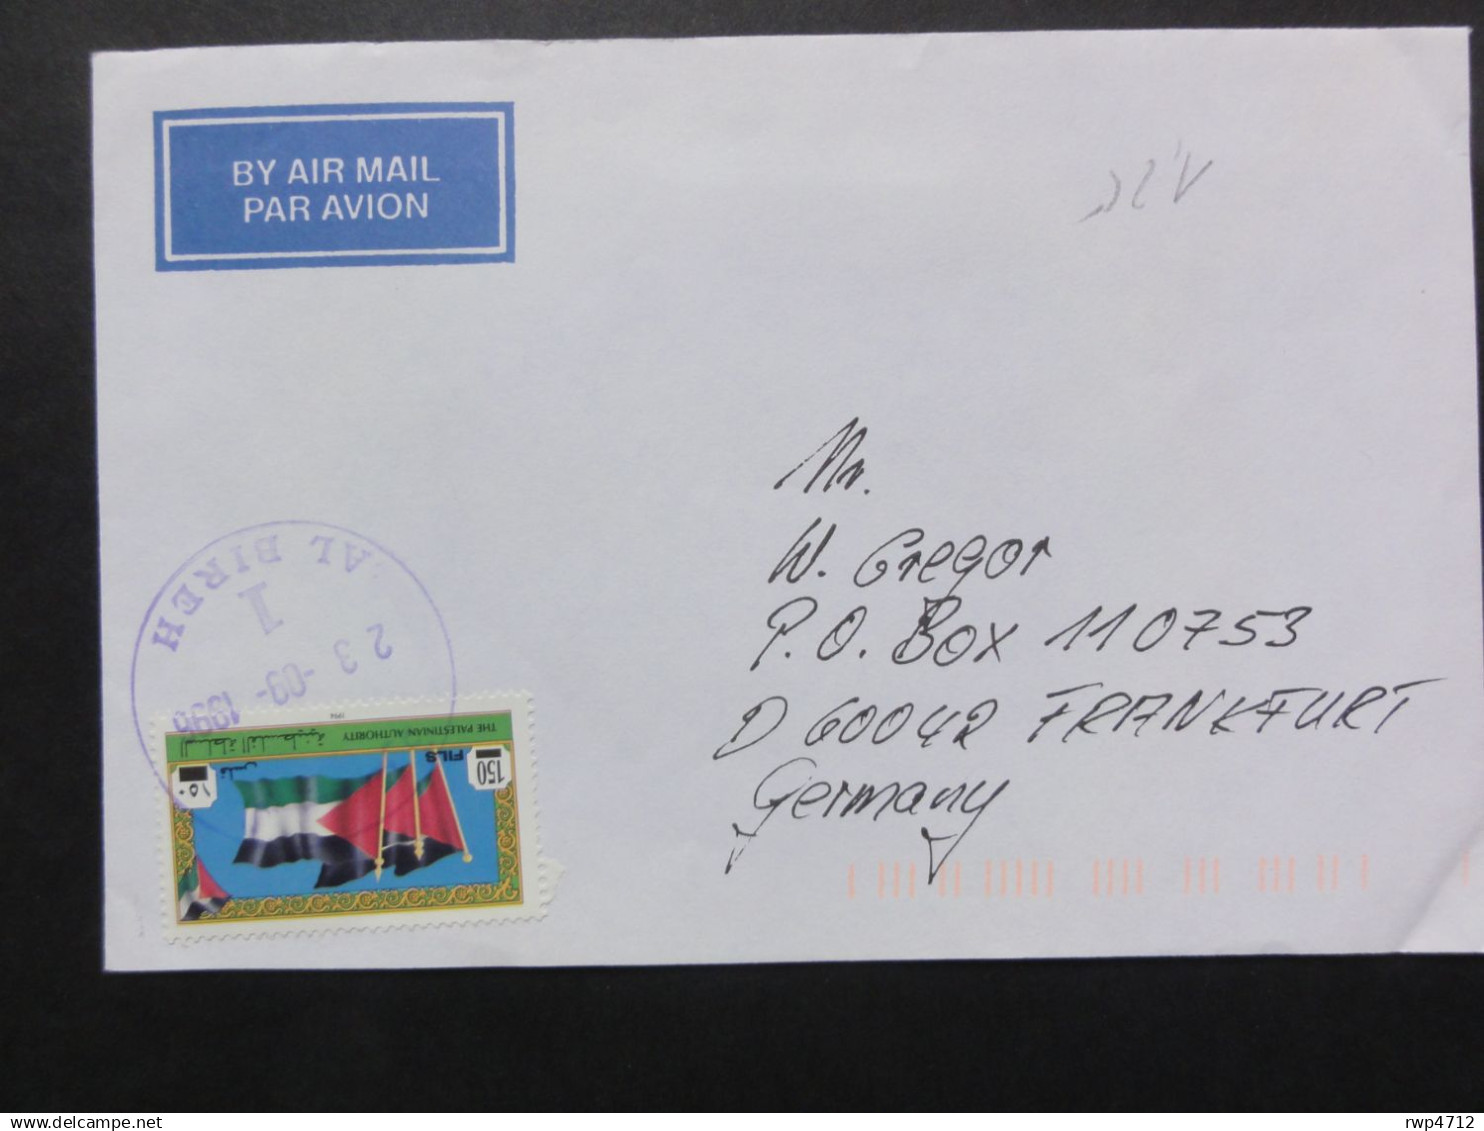 BY AIR MAIL
PAR AVION
Mr.
W. Gregor
P.O. Box 110753
D 60042 FRANKFURT
Germany
AL BIREH
1
23-09-1996
1994
THE PALESTINIAN AUTHORITY السلطة الفلسطينية
150
FILS
١٥٠
فلس
rwp4712